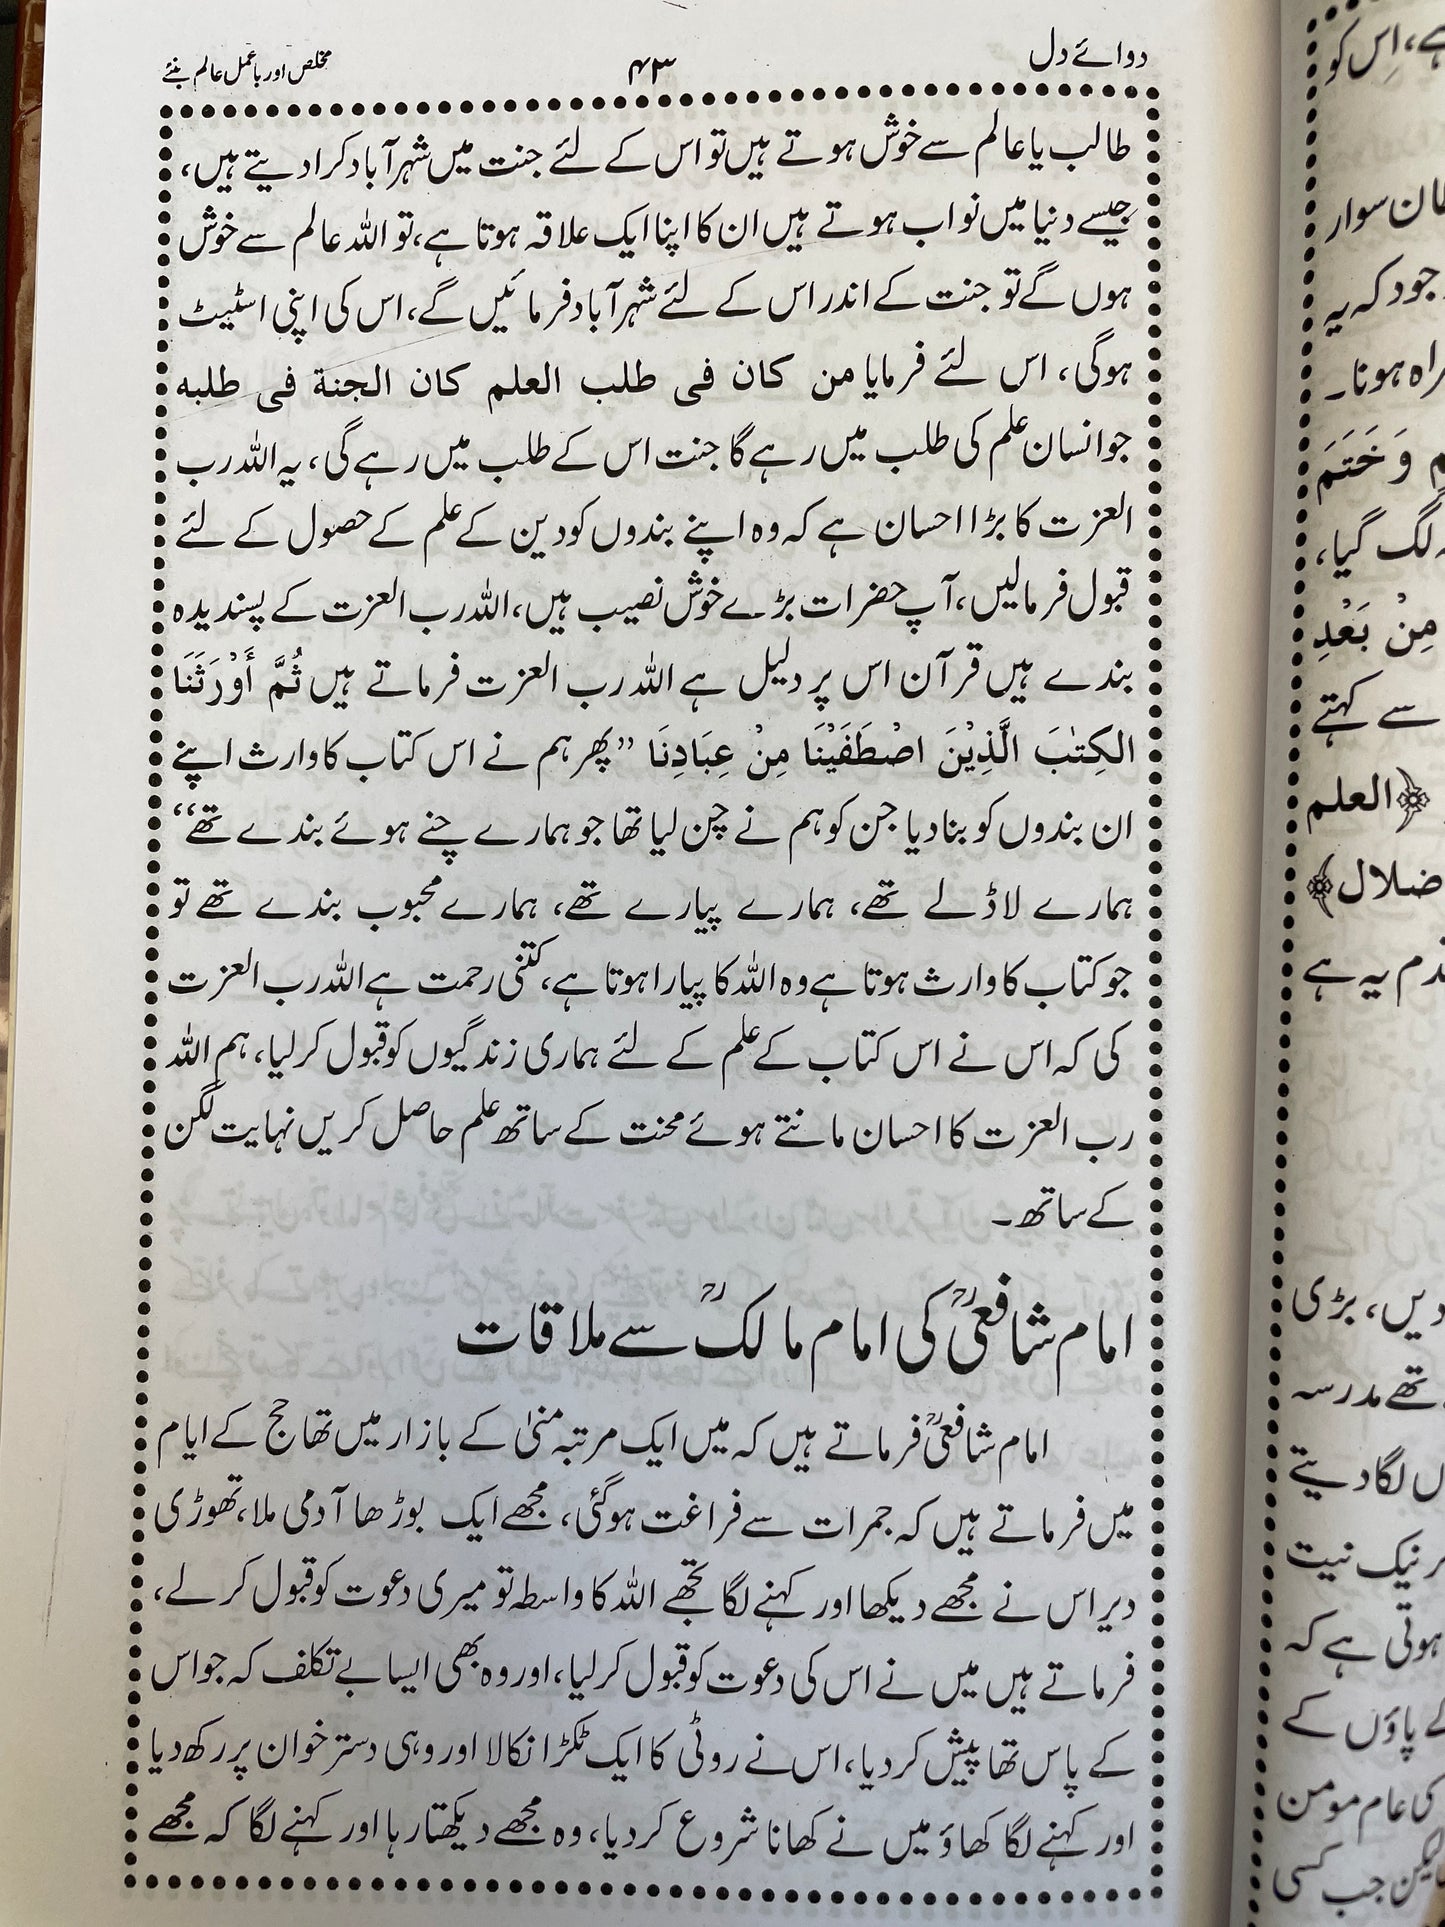 دوائے دل
۴۳
مخلص اور باعمل عالم بنئے
طالب یا عالم سے خوش ہوتے ہیں تو اس کے لئے جنت میں شہر آباد کرا دیتے ہیں،
جیسے دنیا میں نواب ہوتے ہیں ان کا اپنا ایک علاقہ ہوتا ہے، تو اللہ عالم سے خوش
ہوں گے تو جنت کے اندر اس کے لئے شہر آباد فرمائیں گے، اس کی اپنی اسٹیٹ
ہوگی، اس لئے فرمایا من كان فى طلب العلم كان الجنة فى طلبه
جو انسان علم کی طلب میں رہے گا جنت اس کے طلب میں رہے گی، یہ اللہ رب
العزت کا بڑا احسان ہے کہ وہ اپنے بندوں کو دین کے علم کے حصول کے لئے
قبول فرمالیں، آپ حضرات بڑے خوش نصیب ہیں، اللہ رب العزت کے پسندیدہ
بندے ہیں قرآن اس پر دلیل ہے اللہ رب العزت فرماتے ہیں ثُمَّ أَوْرَثْنَا
الكِتٰبَ الَّذِيْنَ اصْطَفَيْنَا مِنْ عِبَادِنَا ”پھر ہم نے اس کتاب کا وارث اپنے
ان بندوں کو بنا دیا جن کو ہم نے چن لیا تھا جو ہمارے چنے ہوئے بندے تھے“
ہمارے لاڈلے تھے، ہمارے پیارے تھے، ہمارے محبوب بندے تھے تو
جو کتاب کا وارث ہوتا ہے وہ اللہ کا پیارا ہوتا ہے، کتنی رحمت ہے اللہ رب العزت
کی کہ اس نے اس کتاب کے علم کے لئے ہماری زندگیوں کو قبول کر لیا، ہم اللہ
رب العزت کا احسان مانتے ہوئے محنت کے ساتھ علم حاصل کریں نہایت لگن
کے ساتھ۔
امام شافعیؒ کی امام مالکؒ سے ملاقات
امام شافعیؒ فرماتے ہیں کہ میں ایک مرتبہ منیٰ کے بازار میں تھا حج کے ایام
میں فرماتے ہیں کہ جمرات سے فراغت ہوگئی، مجھے ایک بوڑھا آدمی ملا، تھوڑی
دیر اس نے مجھے دیکھا اور کہنے لگا تجھے اللہ کا واسطہ تو میری دعوت کو قبول کر لے،
فرماتے ہیں میں نے اس کی دعوت کو قبول کر لیا، اور وہ بھی ایسا بے تکلف کہ جو اس
کے پاس تھا پیش کر دیا، اس نے روٹی کا ایک ٹکڑا نکالا اور وہی دستر خوان پر رکھ دیا
اور کہنے لگا کھاؤ میں نے کھانا شروع کر دیا، وہ مجھے دیکھتا رہا اور کہنے لگا کہ مجھے
ہے، اِس کو
سوار
جود کہ یہ
راہ ہونا۔
وَخَتَمَ
لگ گیا،
مِنْ بَعْدِ
سے کہتے
العلم
ضلال
یہ ہے
دیں، بڑی
تھے مدرسہ
لگا دیتے
نیک نیت
ہوتی ہے کہ
کے پاؤں کے
کی عام مومن
لیکن جب کسی